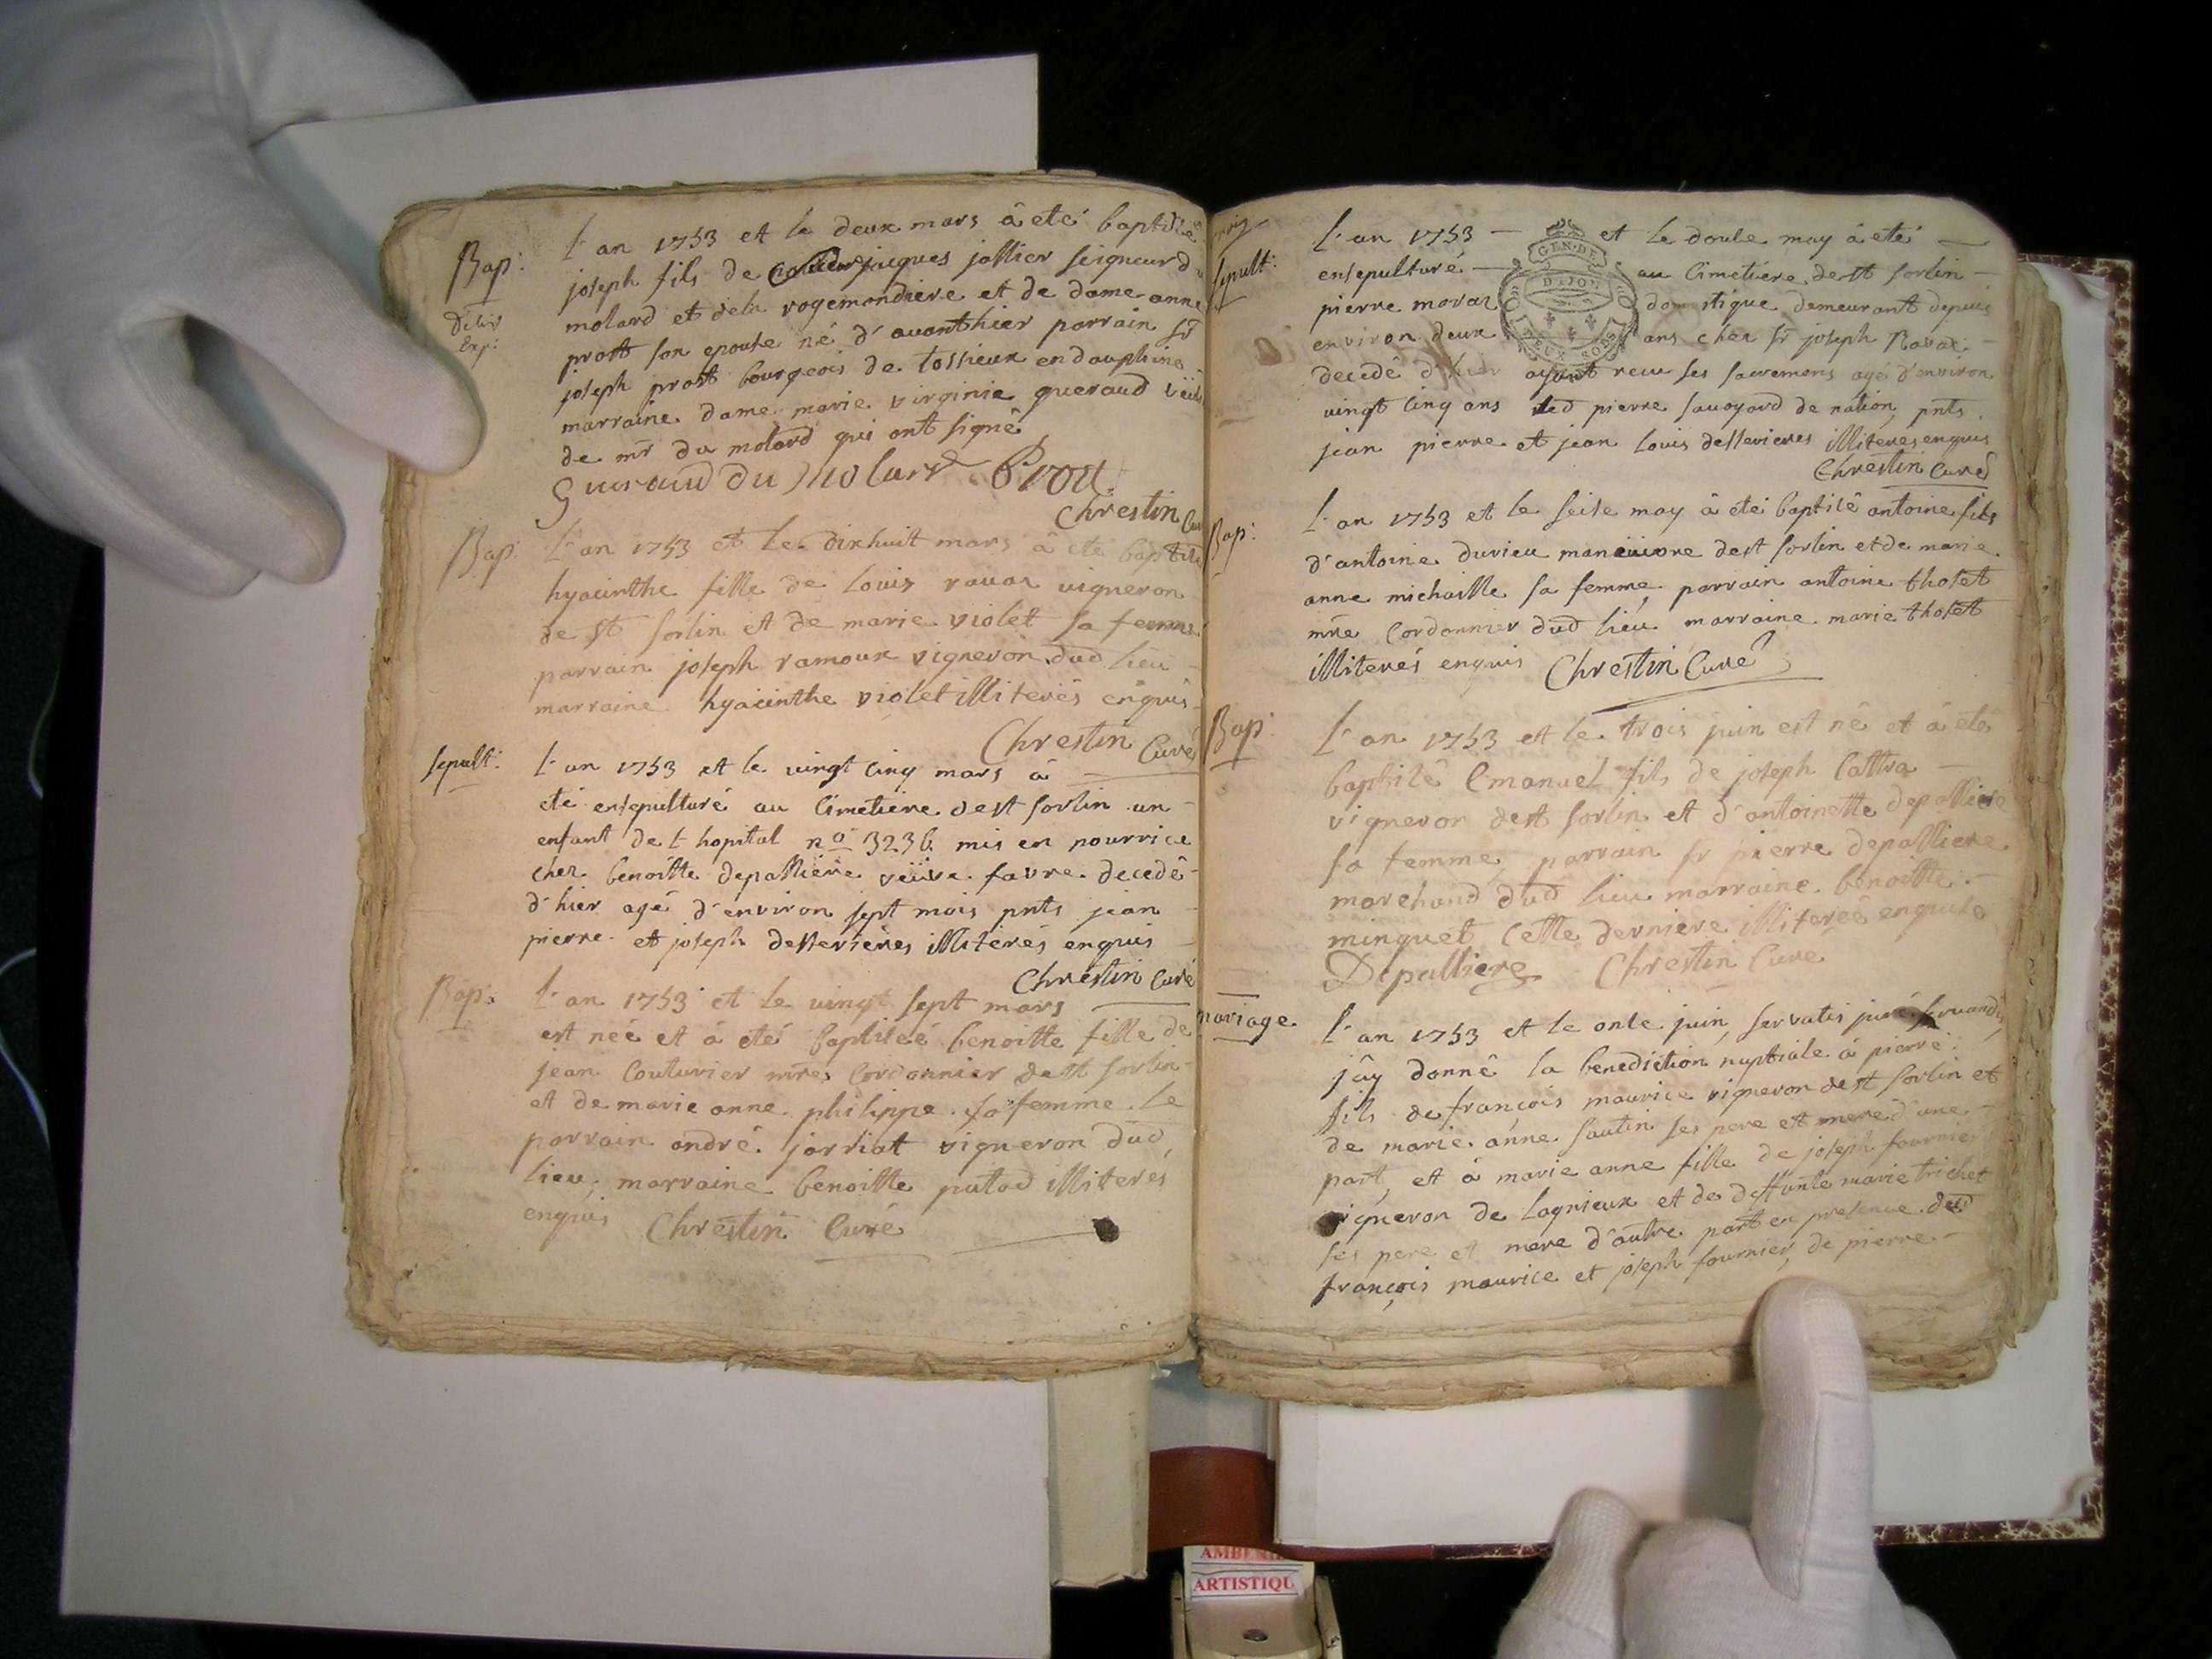 Bap:
L'an 1753 et le deux mars à eté baptisé
joseph fils de jacques jollier seigneur du
molard et dela rogemondiere et de dame anne
Deliv
Exp:
prost son epouse né d'avanthier parrain sr
joseph prost bourgeois de tossieux en dauphine
marraine dame marie virginie gueraud veuve
de mr du molard qui ont signé
Gueraud du Molard Prost
Chrestin Curé
Bap:
L'an 1753 et le dixhuit mars à eté baptisé
hyacinthe fille de louis ravat vigneron
de st sorlin et de marie violet sa femme
parrain joseph ramoux vigneron dud lieu
marraine hyacinthe violet illiterés enquis
Chrestin Curé
sepult:
L'an 1753 et le vingt cinq mars à
eté ensepulturé au Cimetiere dest sorlin un
enfant de L'hopital no 3236 mis en nourrice
chez benoitte depalliere veüve favre decedé
d'hier agé d'environ sept mois pnts jean
pierre et joseph desserieres illiterés enquis
Chrestin Curé
Bap:
L'an 1753 et le vingt sept mars
est neé et à eté baptiseé benoitte fille de
jean Couturier mre Cordonnier dest sorlin
et de marie anne philippe sa femme le
parrain andré jarriat vigneron dud
lieu, marraine benoitte putod illiterés
enquis Chrestin Curé
sepult:
L'an 1753 et le douse may à eté
GEN. DE
DIJON
DEUX SOLS
ensepulturé au Cimetiére dest sorlin
pierre domestique demeurant depuis
environ deux ans chez sr joseph Ravat
decedé d'hier ayant recu ses sacremens agé d'environ
vingt cinq ans led pierre savoyard de nation, pnts
jean pierre et jean louis desserieres illiterés enquis
Chrestin Curé
Bap:
L'an 1753 et le seise may à eté baptisé antoine fils
d'antoine durieu maneüivre dest sorlin et de marie
anne michaille sa femme, parrain antoine thoset
mre Cordonnier dud lieu marraine marie thoset
illiterés enquis Chrestin Curé
Bap:
L'an 1753 et le trois juin est né et à eté
baptisé Emanuel fils de joseph Cattra
vigneron dest sorlin et d'antoinette depalliere
sa femme, parrain sr pierre depalliere
marchand dud lieu marraine benoitte
minguet Cette derniere illitereé enquise
Depalliere Chrestin Curé
mariage
L'an 1753 et le onse juin, servatis juré servandis
j'ay donné la benediction nuptiale à pierre
fils de françois maurice vigneron dest sorlin et
de marie anne sautin ses pere et mere d'une
part, et à marie anne fille de joseph fournier
vigneron de lagnieux et de deffunte marie trichet
ses pere et mere d'autre part en presence dud
françois maurice et joseph fournier, de pierre
AMBE
ARTISTIQU